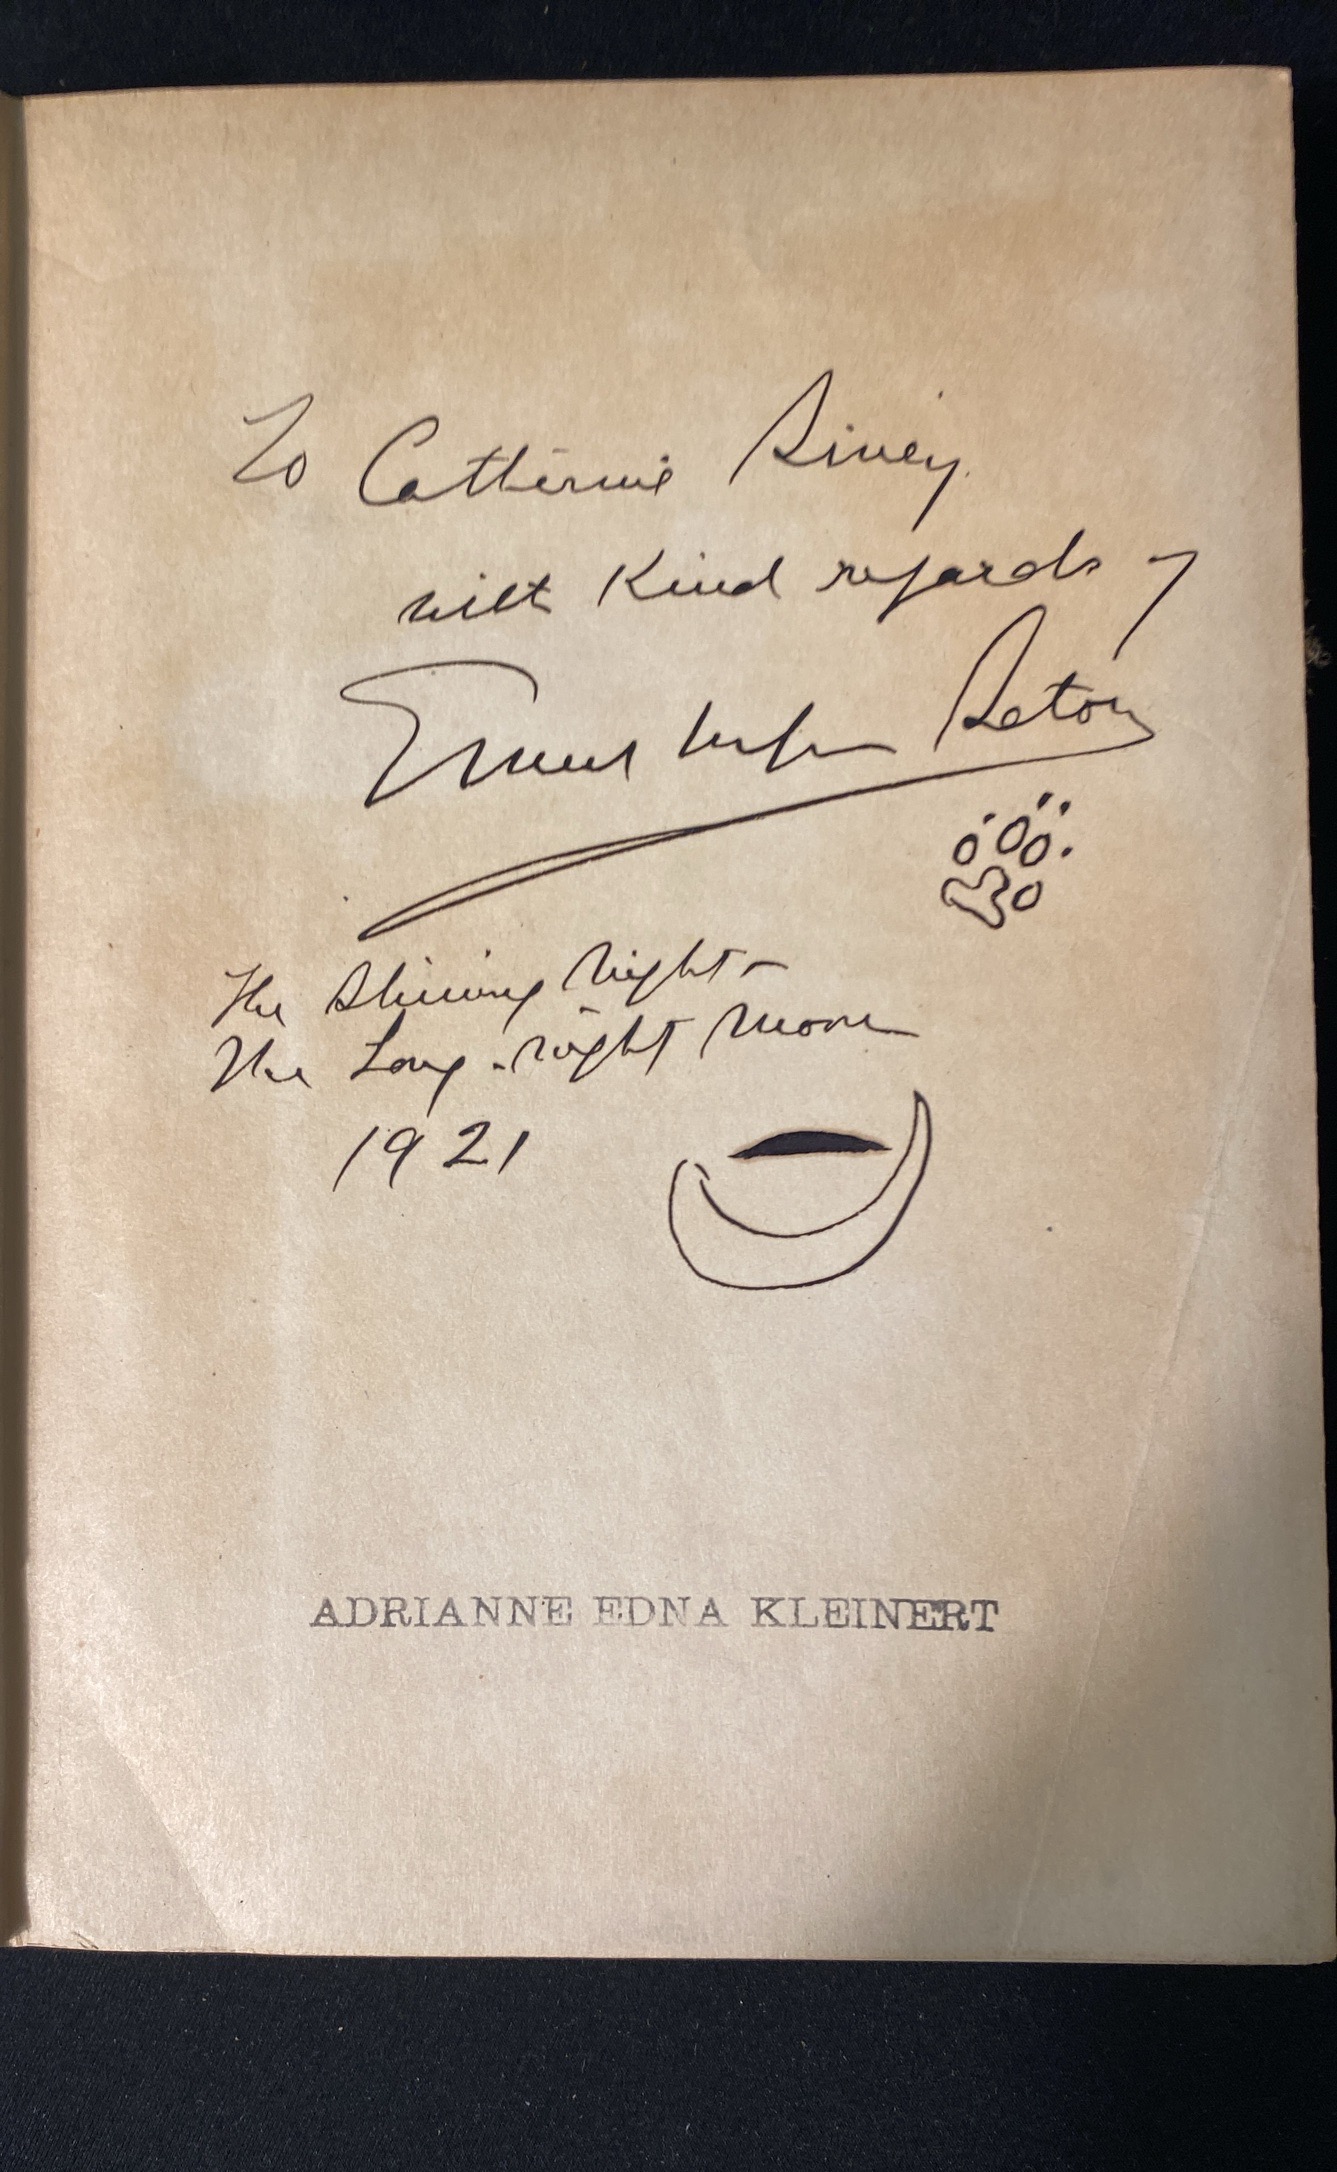 To Catherine Sivey
with Kind regards of
Ernest Thompson Seton
The Shining Night –
The Long-night Moon
1921
ADRIANNE EDNA KLEINERT